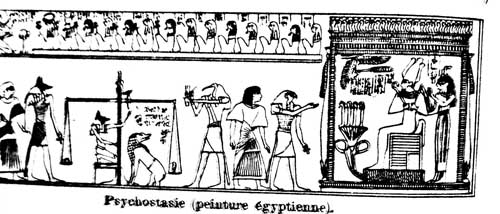 Psychostasie (peinture égyptienne).